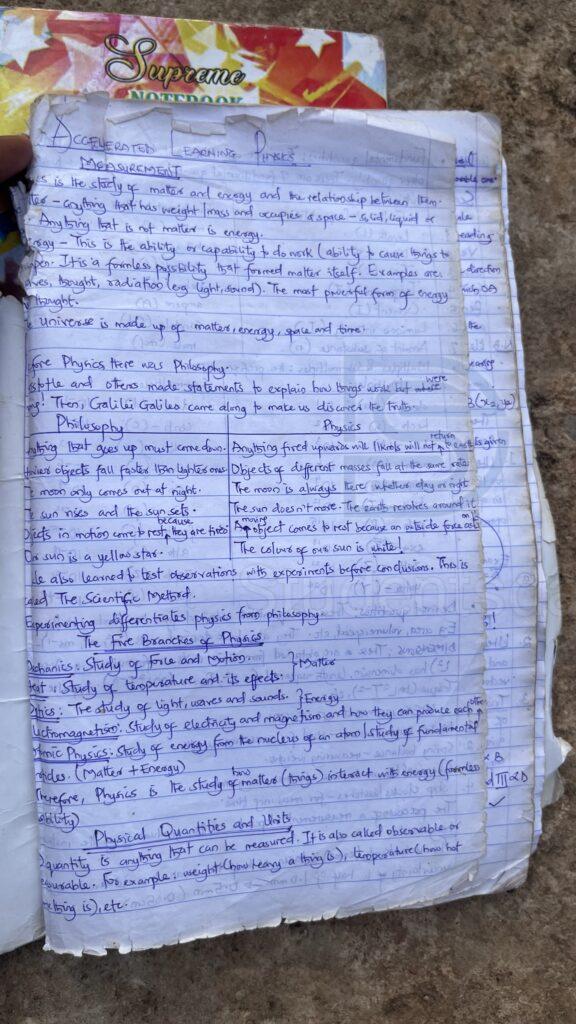 Supreme
NOTEBOOK
ACCELERATED LEARNING PHYSICS
MEASUREMENT
is the study of matter and energy and the relationship between them.
tter - anything that has weight/mass and occupies a space - solid, liquid or
Anything that is not matter is energy.
ergy - This is the ability or capability to do work (ability to cause things to
ppen. It is a formless possibility that formed matter itself. Examples are:
aves, thought, radiation (e.g. light, sound). The most powerful form of energy
thought.
e Universe is made up of matter, energy, space and time.
efore Physics there was Philosophy.
istotle and others made statements to explain how things work but were
ng! Then, Galilei Galileo came along to make us discover the truth.
Philosophy | Physics
nything that goes up must come down. | Anything fired upwards will not return to earth is given
avier objects fall faster than lighter ones | Objects of different masses fall at the same
e moon only comes out at night. | The moon is always there whether day or night
e sun rises and the sun sets. | The sun doesn't move. The earth revolves around it
bjects in motion come to rest because they are tired | A moving object comes to rest because an outside force acts on
Our sun is a yellow star. | The colour of our sun is white!
We also learned to test observations with experiments before conclusions. This is
called The Scientific Method.
Experimenting differentiates physics from philosophy.
The Five Branches of Physics
Mechanics: Study of force and Motion. } Matter
Heat: Study of temperature and its effects.
Optics: The study of light, waves and sounds. } Energy
Electromagnetism: Study of electricity and magnetism and how they can produce each other
Atomic Physics: Study of energy from the nucleus of an atom/study of fundamental
rticles. (Matter + Energy)
Therefore, Physics is the study of how matter (things) interact with energy (formless
ability)
Physical Quantities and Units
quantity is anything that can be measured. It is also called observable or
easurable. For example: weight (how heavy a thing is), temperature (how hot
thing is), etc.